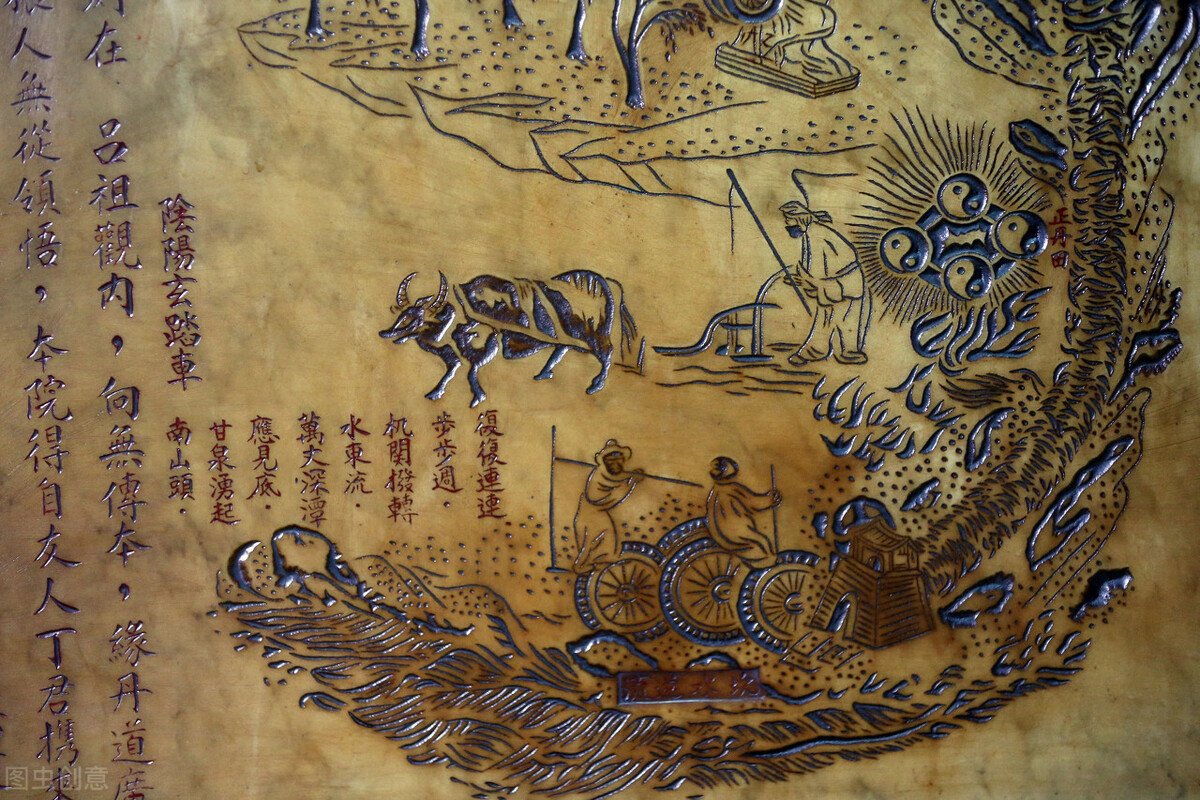 正丹田
復復連連
步步週．
机関撥轉
水東流．
萬丈深潭
應見底．
甘泉湧起
南山頭．
陰陽玄踏車
在 呂祖觀內，向無傳本，緣丹道廣
人無從領悟，本院得自友人丁君携
图虫创意